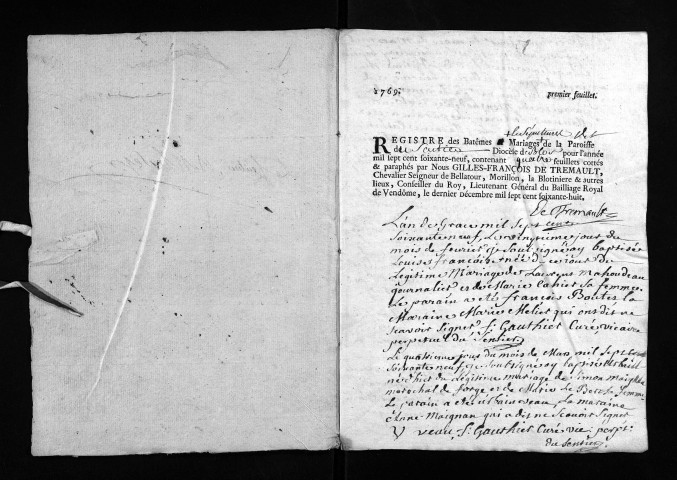 1769.
premier feuillet.
& Sépultures
REGISTRE des Batêmes & Mariages de la Paroisse
du Sentier Diocèse de Blois pour l'année
mil sept cent soixante-neuf, contenant quatre feuillets cottés
& paraphés par Nous GILLES-FRANÇOIS DE TREMAULT,
Chevalier Seigneur de Bellatour, Morillon, la Blotiniere & autres
lieux, Conseiller du Roy, Lieutenant Général du Bailliage Royal
de Vendôme, le dernier décembre mil sept cent soixante-huit.
De Tremault
L'an de Grace mil sept cent
soixante neuf, le vingtieme jour du
mois de fevrier je soussigné ay baptisé
Louise françoise née de ce jour du
Legitime Mariage de Laurent Mahoudeau
journalier et de Marie Cahier sa femme
Le parain a eté françois Boutet la
Maraine Marie Melier qui ont dit ne
scavoir signer. f. Gauthier Curé vicaire
perpetuel du Sentier
Le quatrieme jour du mois de Mars mil sept cent
soixante neuf, je soussigné ay baptisé
né d'hier du Legitime mariage de Simon
marechal de forge et de Marie sa femme
Le parain a eté la maraine
Anne Maignan qui a dit ne scavoir signer
veau f. Gauthier Curé vic. perpt.
du Sentier